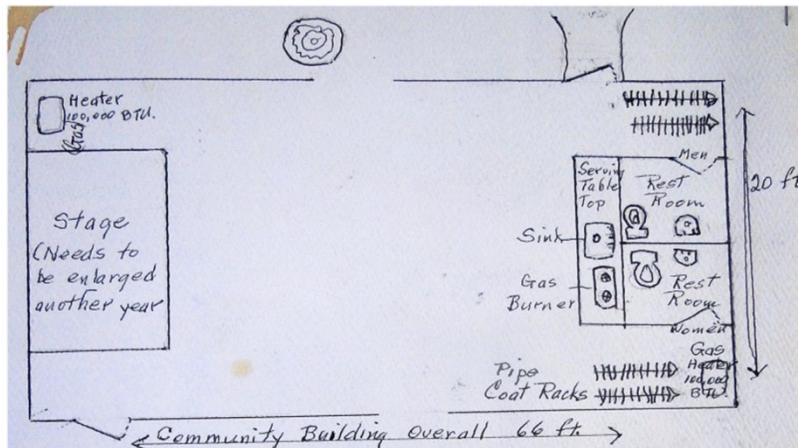 Heater
100,000 BTU.
Gas
Stage
(Needs to
be enlarged
another year
Men
Serving
Table
Top
Rest
Room
20 ft
Sink
Gas
Burner
Rest
Room
Women
Gas
Heater
100,000
BTU.
Pipe
Coat Racks
Community Building Overall 66 ft.